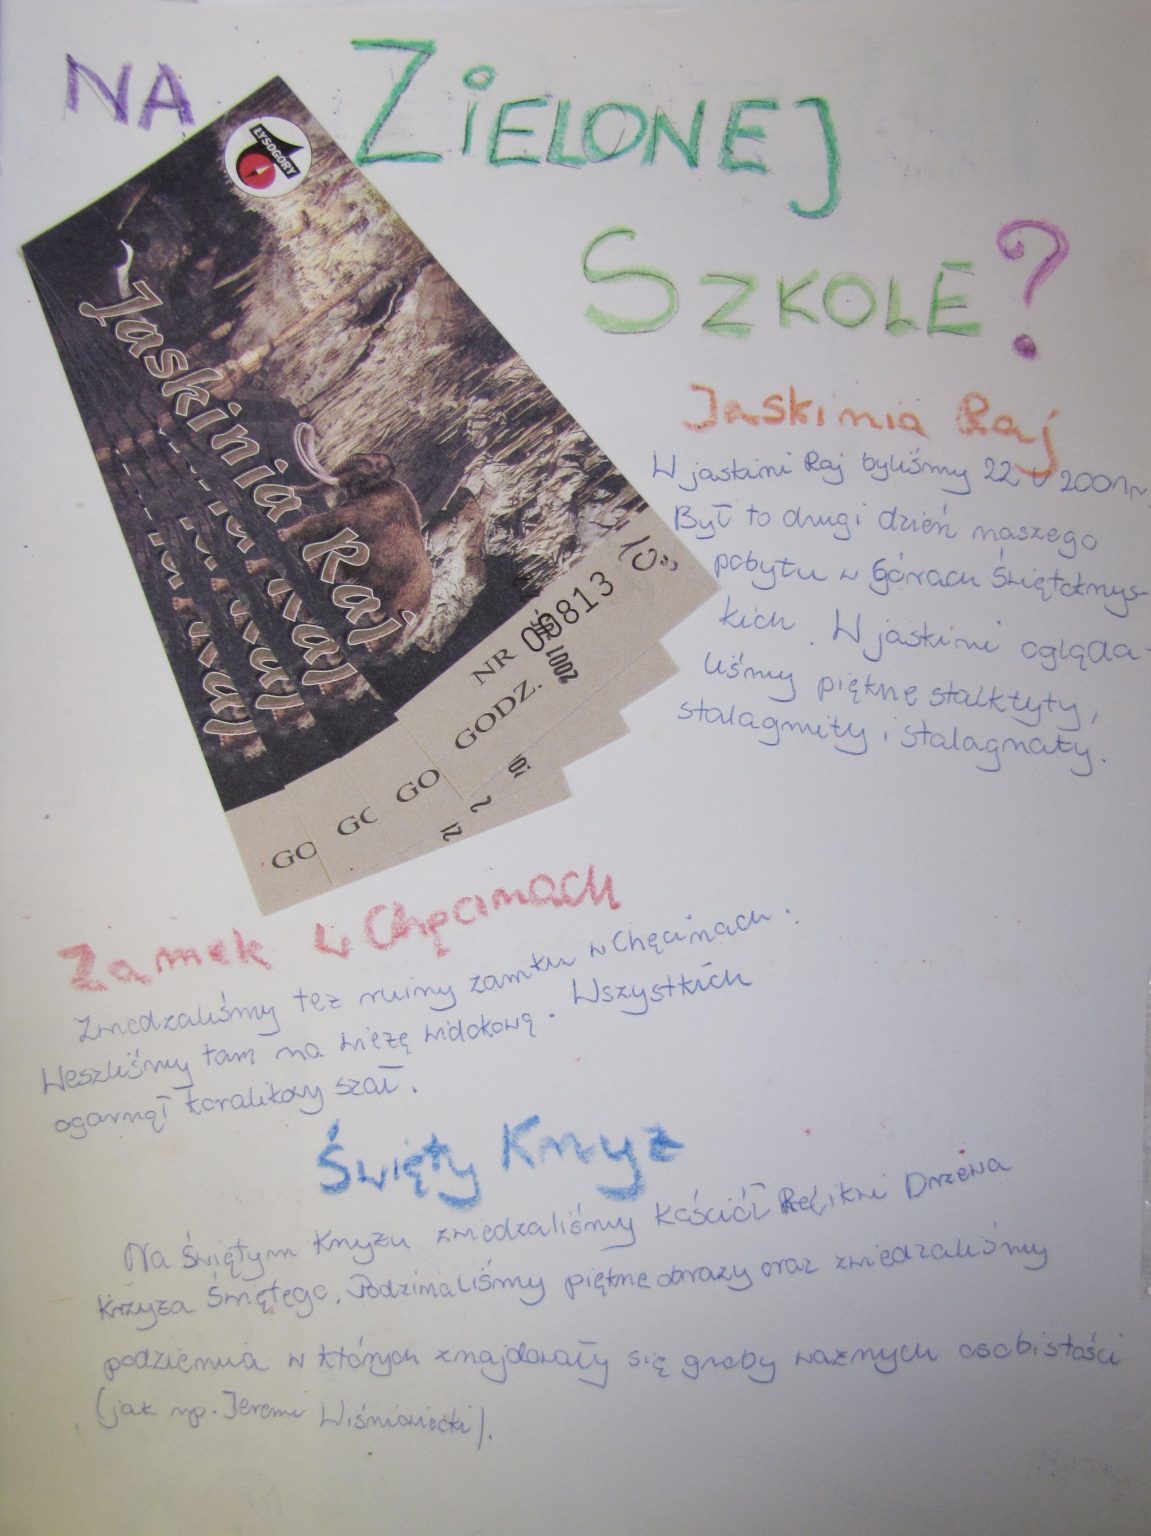 NA ZIELONEJ
SZKOLE?
ŁYSOGORY
Jaskinia Raj
NR 00813
GODZ.
2001
GO
GO
GO
Jaskinia Raj
W jaskini Raj byliśmy 22 V 2001r.
Był to drugi dzień naszego
pobytu w Górach Świętokrzys-
kich. W jaskini ogląda-
liśmy piękne stalktyty,
stalagmity i stalagnaty.
Zamek w Chęcinach
Zwiedzaliśmy też ruiny zamku w Chęcinach.
Weszliśmy tam na wieżę widokową. Wszystkich
ogarnął koralikowy szał.
Święty Krzyż
Na Świętym Krzyżu zwiedzaliśmy kościół Relikwi Drzewa
Krzyża Świętego. Podziwialiśmy piękne obrazy oraz zwiedzaliśmy
podziemia w których znajdowały się groby ważnych osobistości
(jak np. Jeremi Wiśniowiecki).